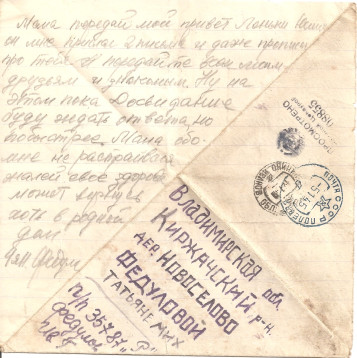 Мама передай мой привет
он мне прислал 2 письма и даже
про тебя. И передайте всем моим
друзьям и знакомым. Ну на
этом пока Досвидание
буду ждать ответа, но
побыстрее. Мама обо
мне не расстраивайся
жалей свое здоровье
может вернусь
хотя в родной
дом
Владимирская обл.
Киржачский р-н.
дер. Новоселово
Федуловой
Татьяне Мах
п/п 35787 "Р"
Федулов
ПРОСМОТРЕНО
08836
ПОЧТА СССР